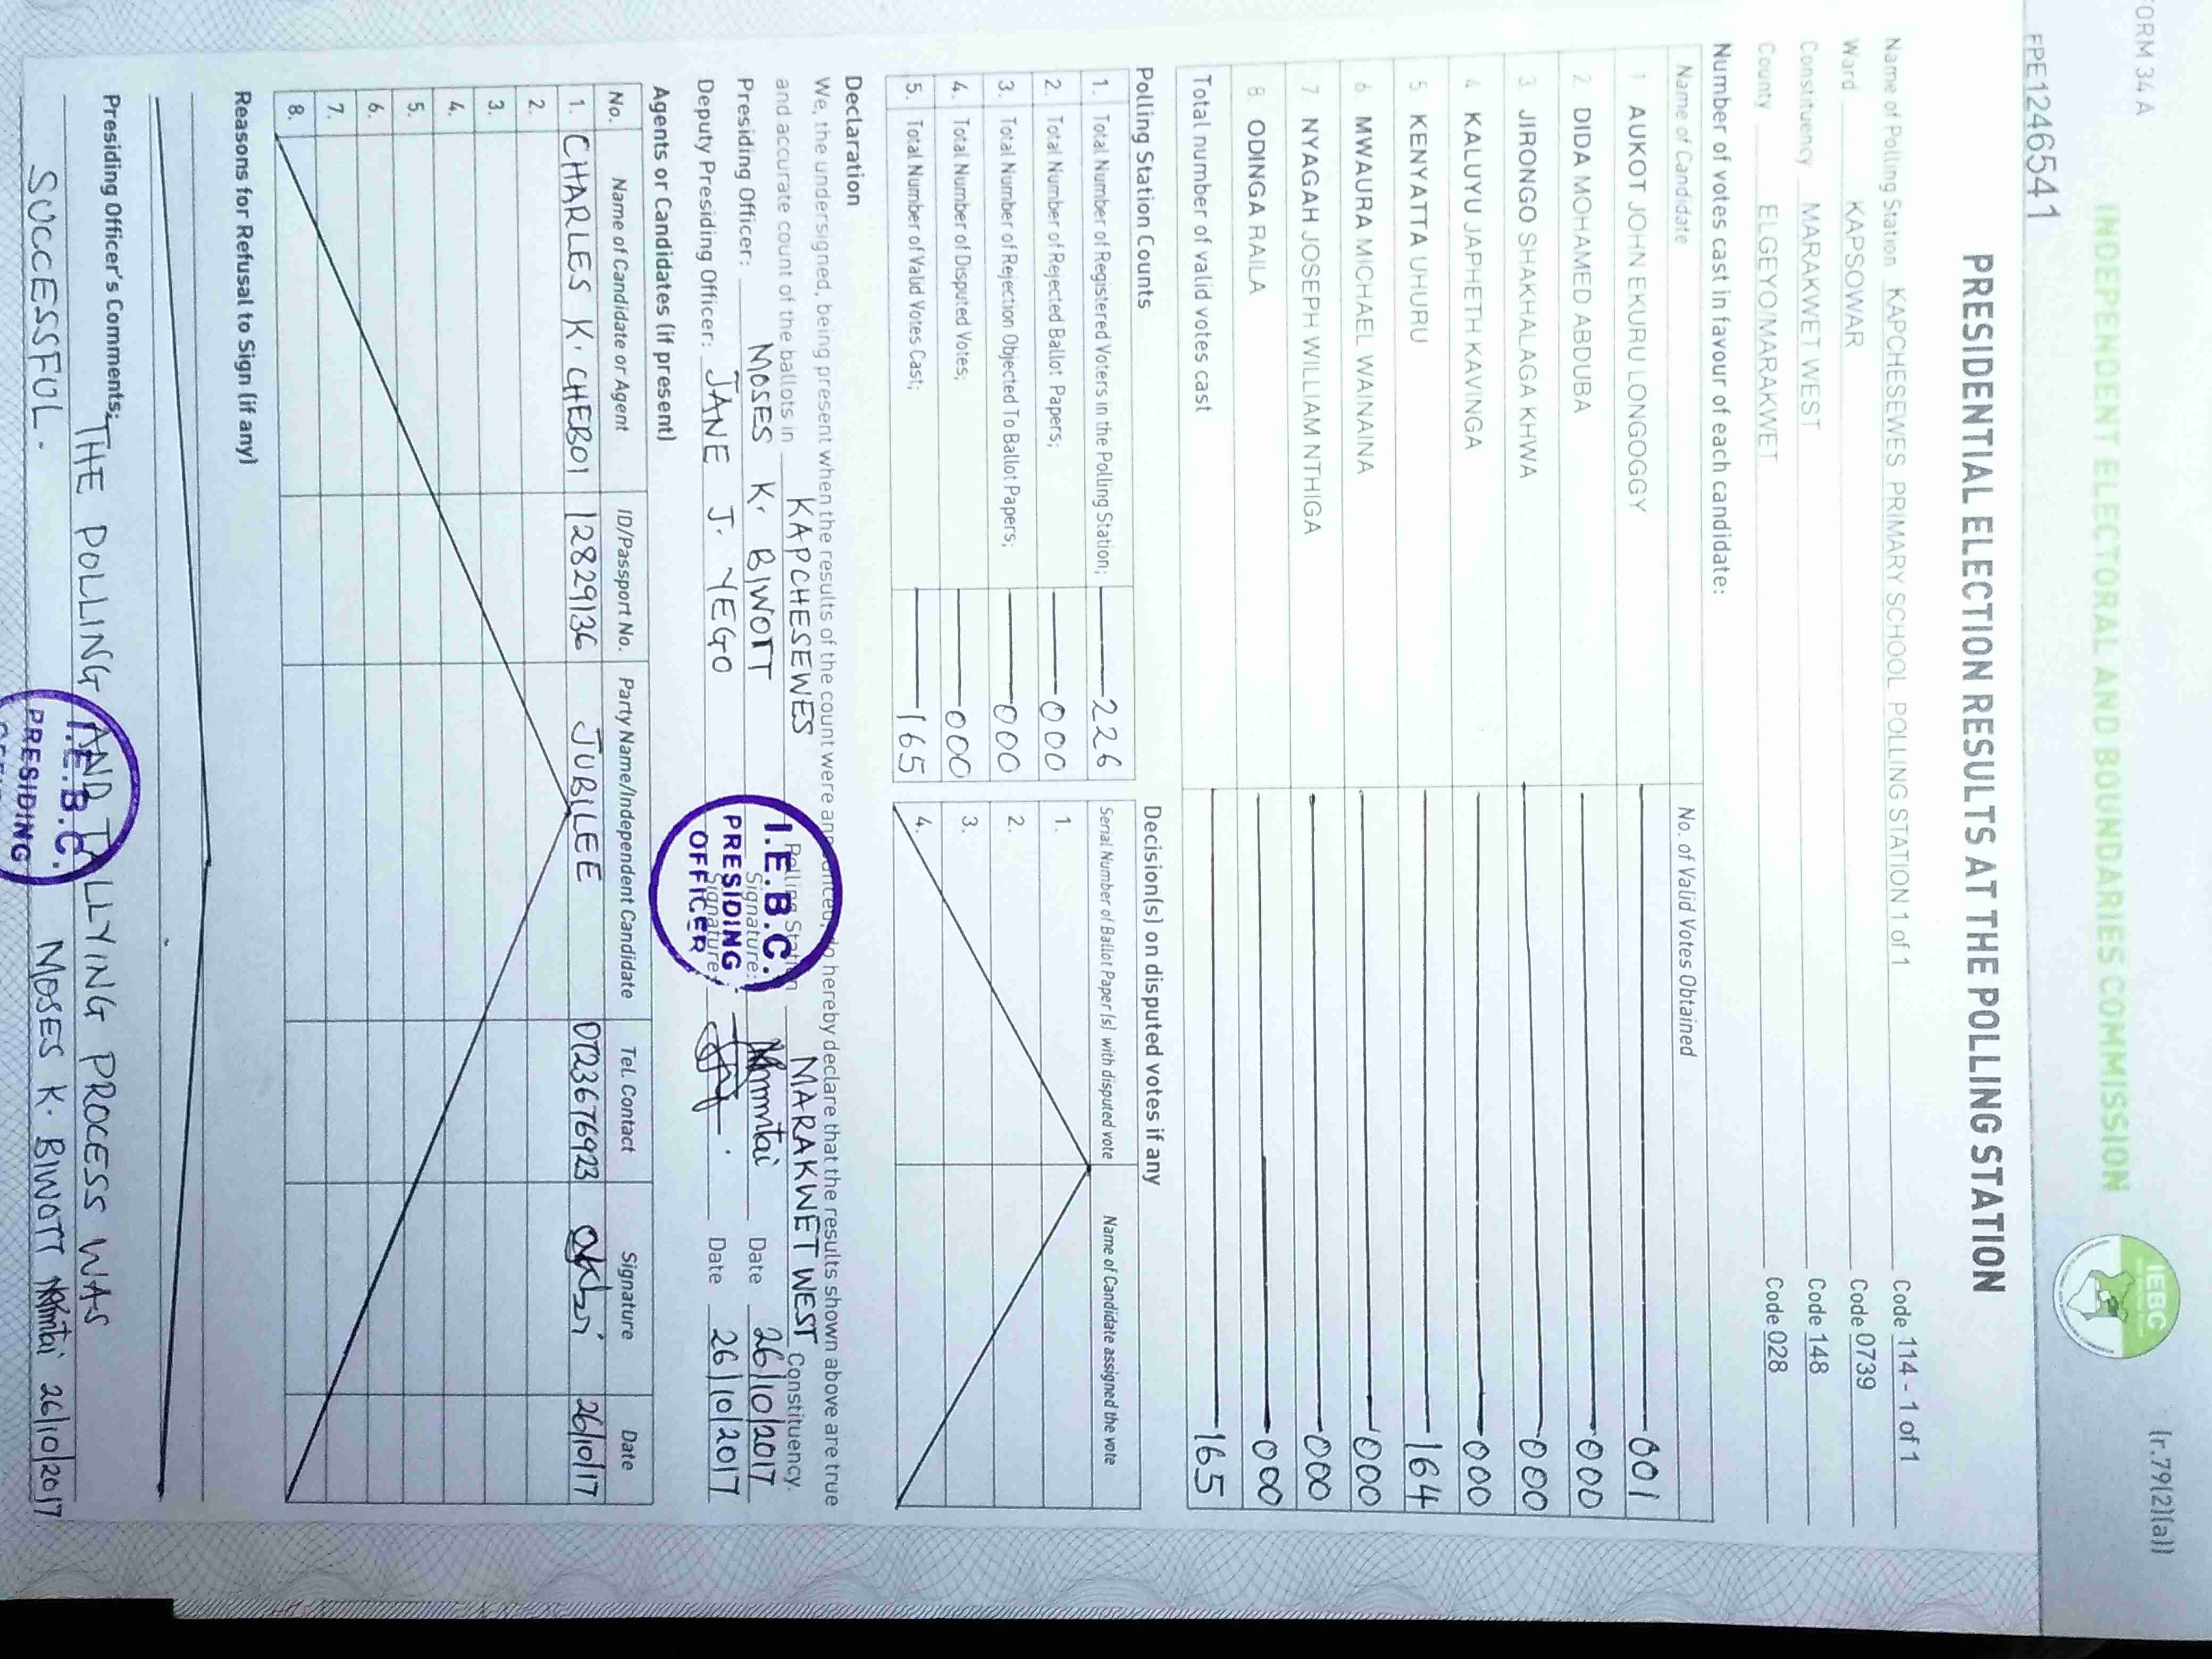 FORM 34 A
(r.79(2)(a))
INDEPENDENT ELECTORAL AND BOUNDARIES COMMISSION
IEBC
FPE1246541
PRESIDENTIAL ELECTION RESULTS AT THE POLLING STATION
Name of Polling Station KAPCHESEWES PRIMARY SCHOOL POLLING STATION 1 of 1 Code 114 - 1 of 1
Ward KAPSOWAR Code 0739
Constituency MARAKWET WEST Code 148
County ELGEYO/MARAKWET Code 028
Number of votes cast in favour of each candidate:
Name of Candidate No. of Valid Votes Obtained
1 AUKOT JOHN EKURU LONGOGGY 001
2. DIDA MOHAMED ABDUBA 000
3 JIRONGO SHAKHALAGA KHWA 000
4 KALUYU JAPHETH KAVINGA 000
5 KENYATTA UHURU 164
6 MWAURA MICHAEL WAINAINA 000
7. NYAGAH JOSEPH WILLIAM NTHIGA 000
8. ODINGA RAILA 000
Total number of valid votes cast 165
Polling Station Counts
1. Total Number of Registered Voters in the Polling Station; 226
2. Total Number of Rejected Ballot Papers; 000
3. Total Number of Rejection Objected To Ballot Papers; 000
4. Total Number of Disputed Votes; 000
5. Total Number of Valid Votes Cast; 165
Decision(s) on disputed votes if any
Serial Number of Ballot Paper (s) with disputed vote Name of Candidate assigned the vote
1.
2.
3.
4.
Declaration
We, the undersigned, being present when the results of the count were announced, do hereby declare that the results shown above are true
and accurate count of the ballots in KAPCHESEWES Polling Station MARAKWET WEST Constituency.
Presiding Officer: MOSES K. BIWOTT Signature: Date 26/10/2017
Deputy Presiding Officer: JANE J. YEGO Signature: Date 26/10/2017
I.E.B.C.
PRESIDING
OFFICER
Agents or Candidates (if present)
No. Name of Candidate or Agent ID/Passport No. Party Name/Independent Candidate Tel. Contact Signature Date
1. CHARLES K. CHEBOI 12829136 JUBILEE 0723676923 26/10/17
2.
3.
4.
5.
6.
7.
8.
Reasons for Refusal to Sign (if any)
Presiding Officer's Comments; THE POLLING AND TALLYING PROCESS WAS
SUCCESSFUL. MOSES K. BIWOTT 26/10/2017
I.E.B.C.
PRESIDING